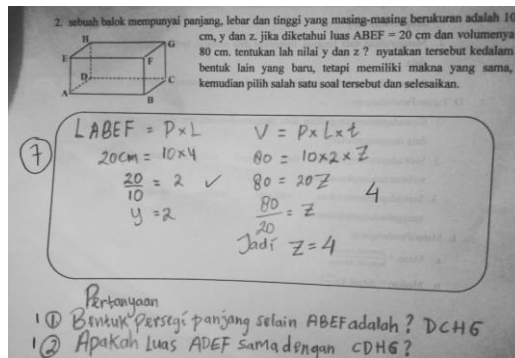 2. sebuah balok mempunyai panjang, lebar dan tinggi yang masing-masing berukuran adalah 10
cm, y dan z. jika diketahui luas ABEF = 20 cm dan volumenya
80 cm. tentukan lah nilai y dan z ? nyatakan tersebut kedalam
bentuk lain yang baru, tetapi memiliki makna yang sama,
kemudian pilih salah satu soal tersebut dan selesaikan.
H G
E F
D C
A B
7
LABEF = P×L
20cm = 10×y
20/10 = 2 ✓
y = 2
V = P×L×t
80 = 10×2×Z
80 = 20Z
80/20 = Z
Jadi Z = 4
4
Pertanyaan
1 ① Bentuk persegi panjang selain ABEF adalah? DCHG
1 ② Apakah Luas ADEF sama dengan CDHG?